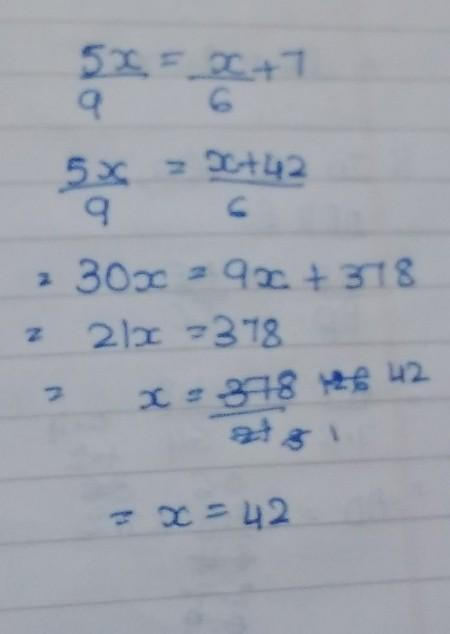 5x/9 = x/6 + 7
5x/9 = x+42/6
= 30x = 9x + 378
= 21x = 378
= x = 378/21 126 42 3 1
= x = 42